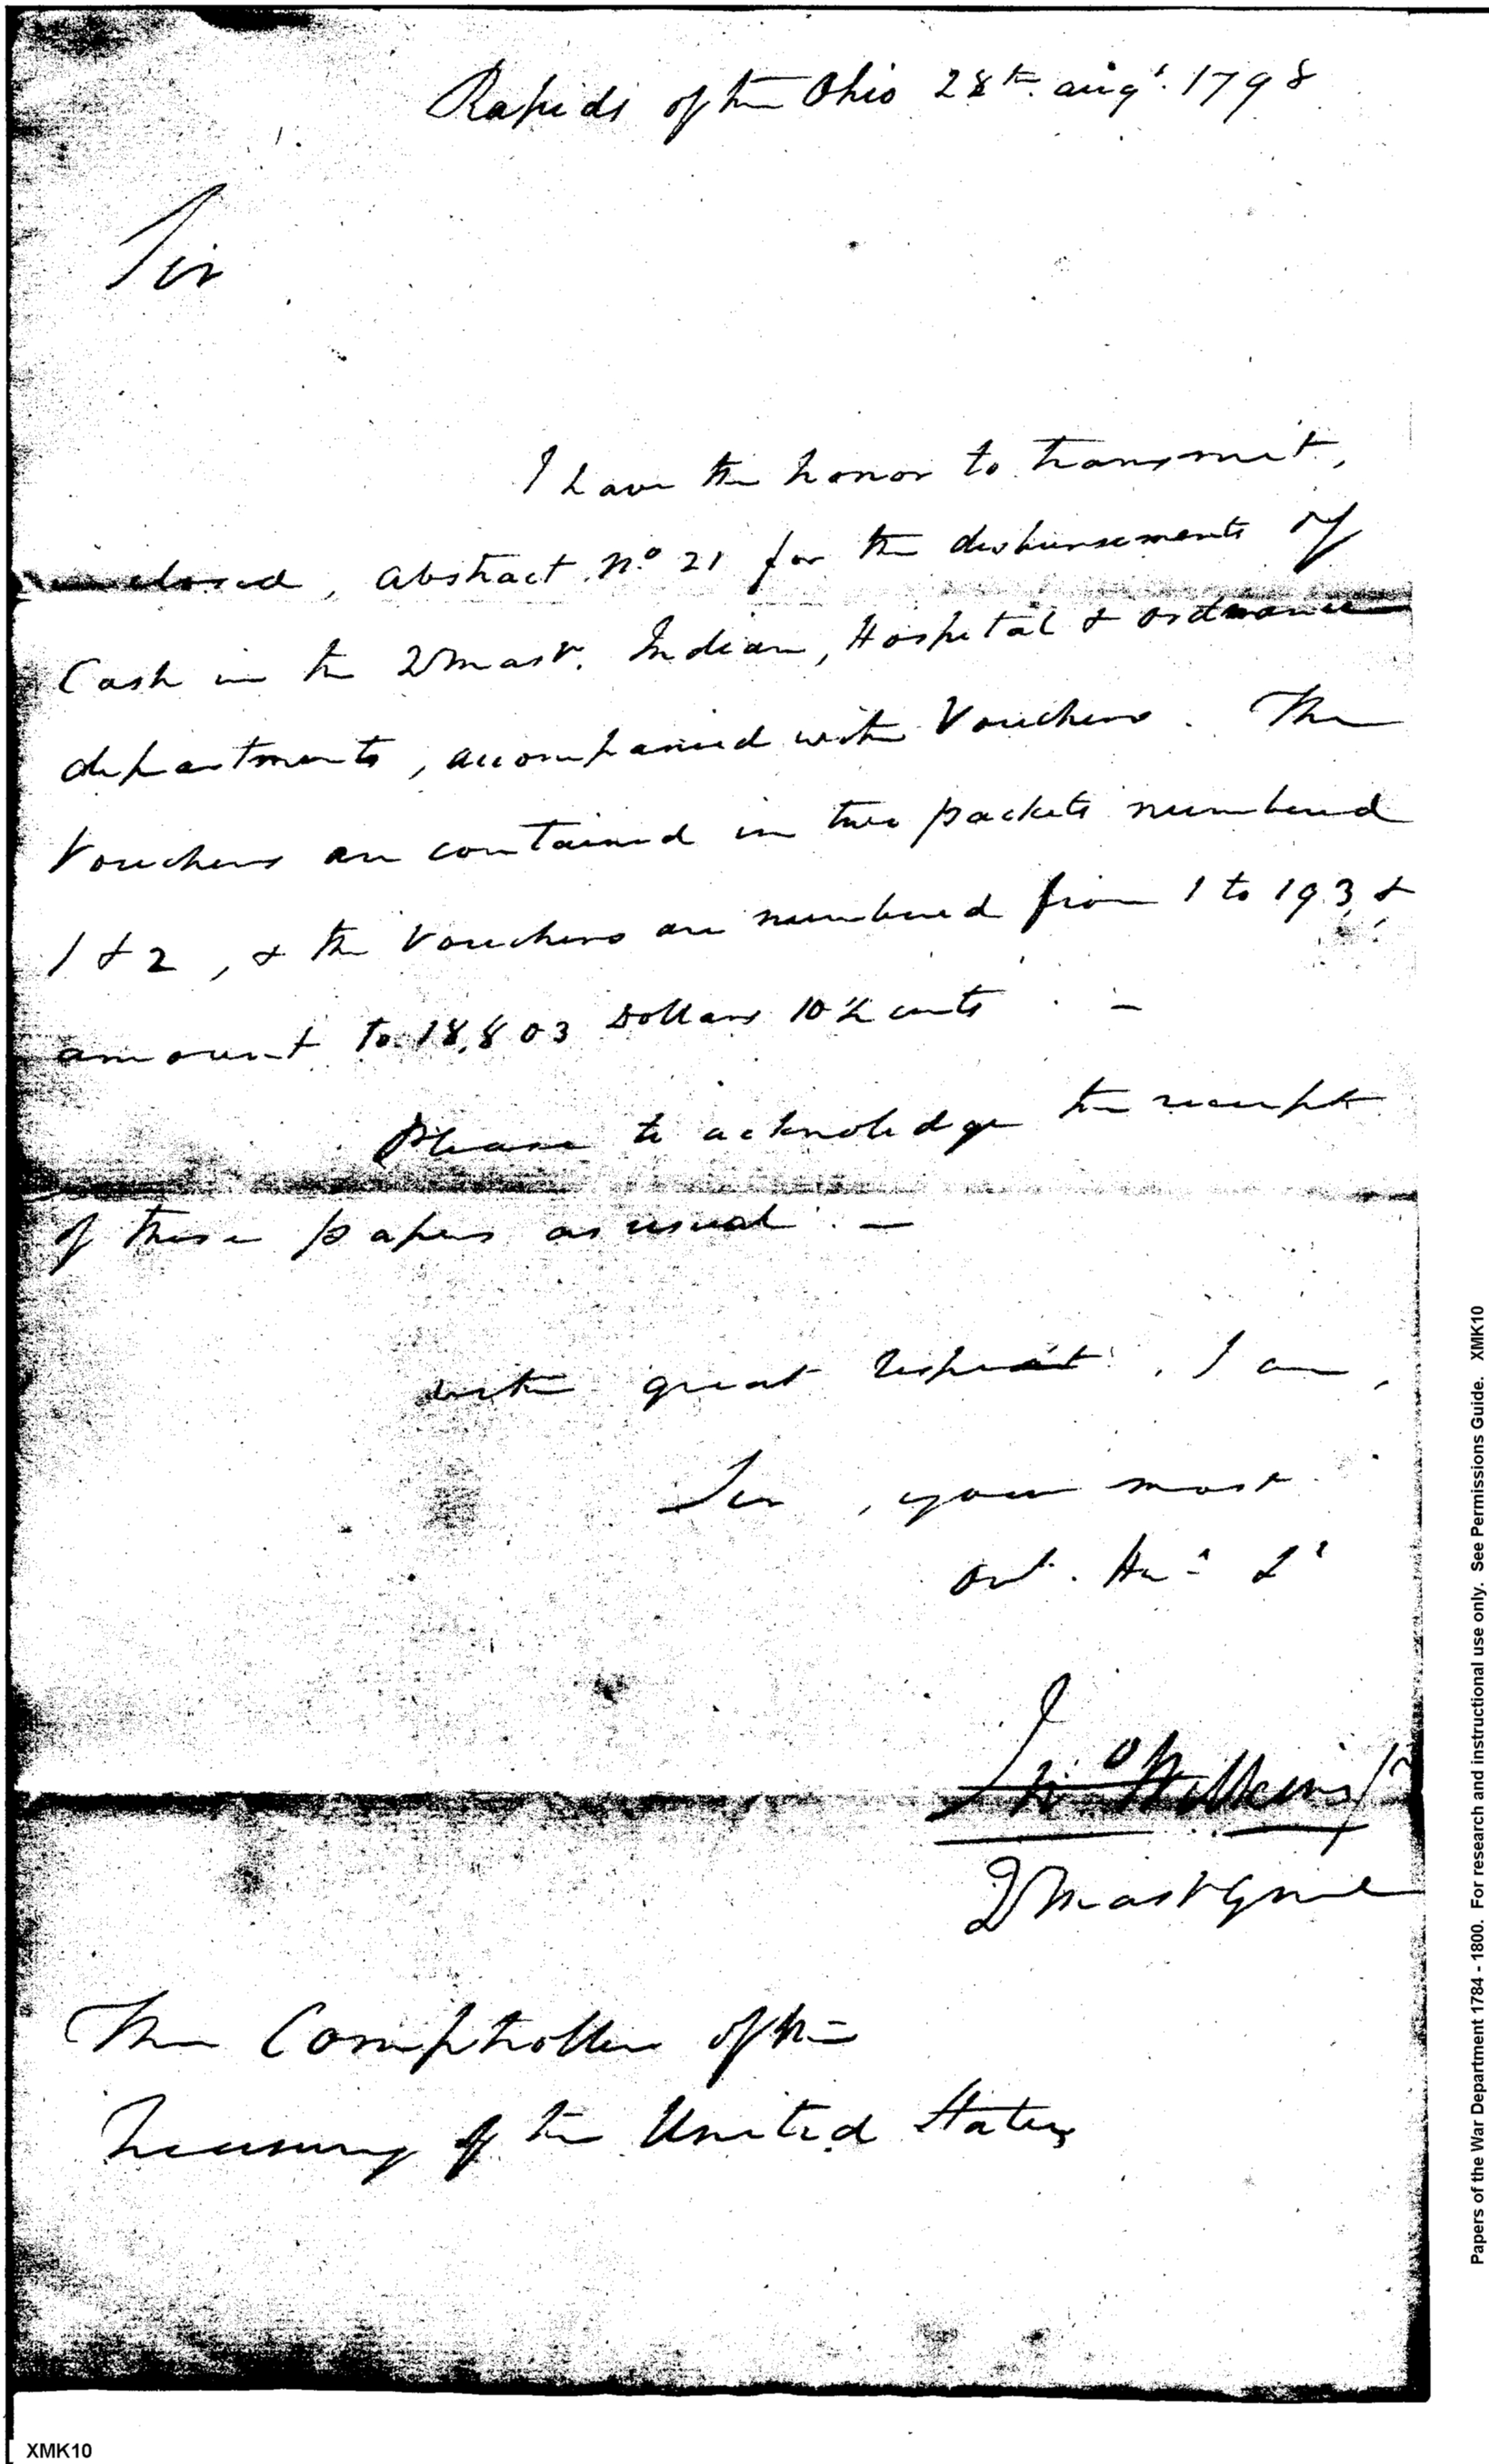 Rapids of the Ohio 28th. augt. 1798
Sir
I have the honor to transmit,
enclosed, abstract No 21 for the disbursements of
Cash in the Qmastr. Indian, Hospital & ordnance
departments, accompanied with Vouchers. The
Vouchers are contained in two packets numbered
1 & 2, & the Vouchers are numbered from 1 to 193, &
amount to 18,803 Dollars 10½ cents. —
Please to acknoledge the receipt
of these papers as usual. —
with great respect, I am,
Sir, your most
obt. Hue. St
Jno Wilkins Jr
QMastr Genl
The Comptroller of the
Treasury of the United States
Papers of the War Department 1784 - 1800. For research and instructional use only. See Permissions Guide. XMK10
XMK10